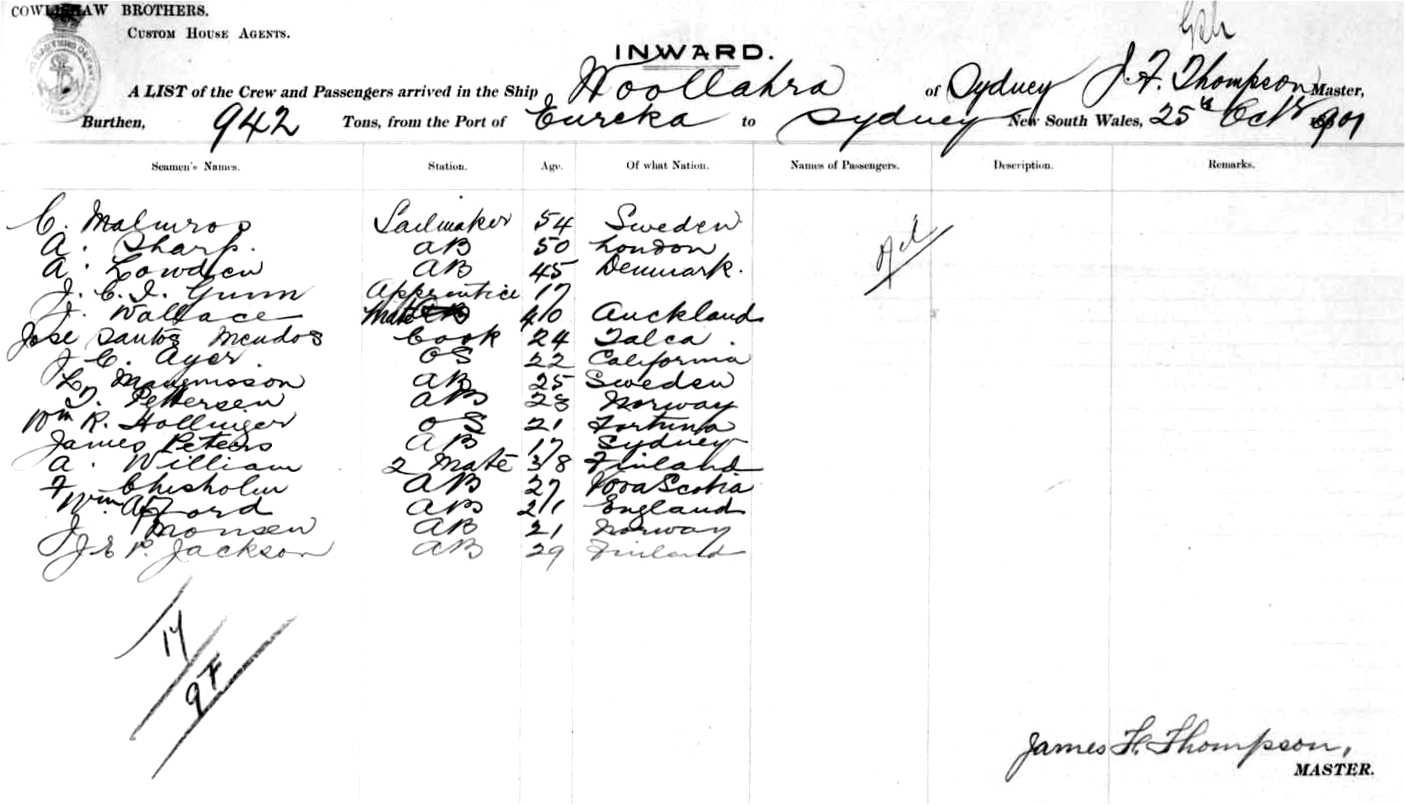 COWLISHAW BROTHERS.
CUSTOM HOUSE AGENTS.
INWARD.
A LIST of the Crew and Passengers arrived in the Ship Woollahra of Sydney J. F. Thompson Master,
Burthen, 942 Tons, from the Port of Eureka to Sydney New South Wales, 25th Octr 1901
Seamen's Names. Station. Age. Of what Nation. Names of Passengers. Description. Remarks.
C. Malmros Sailmaker 54 Sweden
A. Sharp. AB 50 London
A. Lowden AB 45 Denmark.
J. C. I. Gunn Apprentice 17
J. Wallace Mate 40 Auckland
Jose Santos Mendos Cook 24 Talca.
J C. Ayer. OS 22 California
L. Magnusson AB 25 Sweden
T. Pettersen AB 23 Norway
Wm R. Hollinger OS 21 Fortuna
James Peters AB 17 Sydney
A. William 2 Mate 38 Finland
F. Chisholm AB 27 Nova Scotia
Wm. Afford AB 21 England
J. Monsen AB 21 Norway
J. E. P. Jackson AB 29 Finland
Nil
17
9F
James F. Thompson,
MASTER.